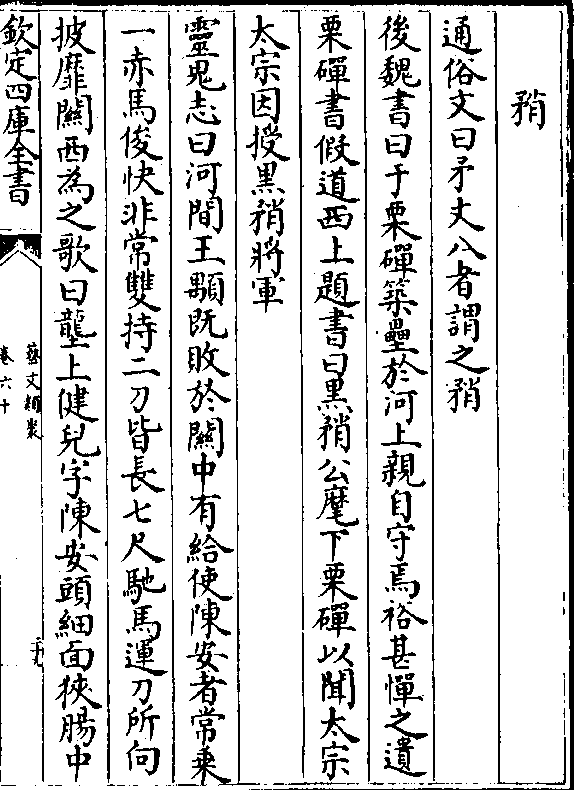 矟
通俗文曰矛丈八者謂之矟
後魏書曰于栗磾築壘於河上親自守焉裕甚憚之遺
栗磾書假道西上題書曰黑矟公麾下栗磾以聞太宗
太宗因授黑矟將軍
靈鬼志曰河間王顒既敗於關中有給使陳安者常乗
一赤馬俊快非常雙持二刀皆長七尺馳馬運刀所向
披靡關西為之歌曰壟上健兒字陳安頭細面狹腸中
欽定四庫全書
藝文類聚
卷六十
二十九